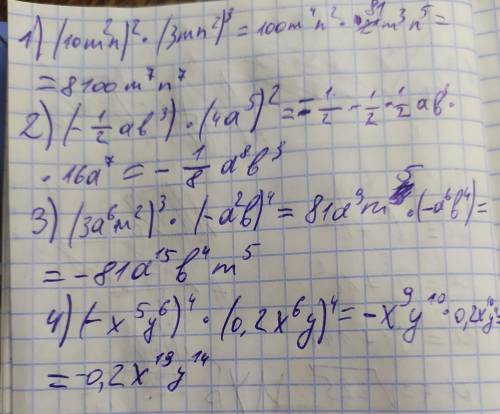 1) (10m²n)² · (3mn²)³ = 100m⁴n² · 81m³n⁵ =
= 8100m⁷n⁷
2) (-1/2ab³) · (4a⁵)² = -1/2 - 1/2 - 1/2ab³ ·
· 16a⁷ = -1/8a⁸b³
3) (3a⁶m²)³ · (-a²b)⁴ = 81a⁹m⁵ · (-a⁶b⁴) =
= -81a¹⁵b⁴m⁵
4) (-x⁵y⁶)⁴ · (0,2x⁶y)⁴ = -x⁹y¹⁰ · 0,2x¹⁰y⁴
= -0,2x¹⁹y¹⁴